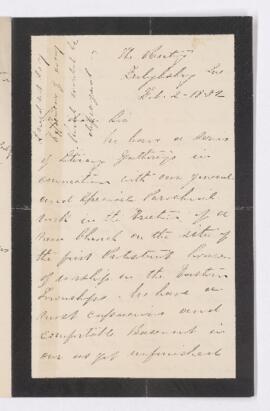 The Rectory
Frelighsburg Que
Feb. 2 - 1882
Sir
We have a series
of Literary Gatherings in
connection with our general
and special Parochial
work in the Erection of a
new Church on the site of
the first Protestant house
of worship in the Eastern
Townships. We have a
most capacious and
comfortable Basement in
our as yet unfinished